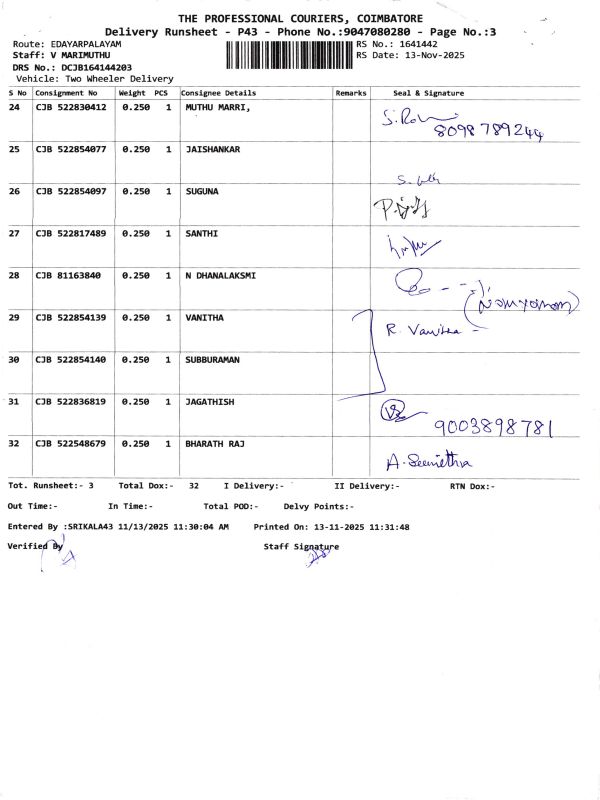 THE PROFESSIONAL COURIERS, COIMBATORE
Delivery Runsheet - P43 - Phone No.:9047080280 - Page No.:3
Route: EDAYARPALAYAM RS No.: 1641442
Staff: V MARIMUTHU RS Date: 13-Nov-2025
DRS No.: DCJB164144203
Vehicle: Two Wheeler Delivery
S No Consignment No Weight PCS Consignee Details Remarks Seal & Signature
24 CJB 522830412 0.250 1 MUTHU MARRI,
8098789244
25 CJB 522854077 0.250 1 JAISHANKAR
26 CJB 522854097 0.250 1 SUGUNA
27 CJB 522817489 0.250 1 SANTHI
28 CJB 81163840 0.250 1 N DHANALAKSMI
29 CJB 522854139 0.250 1 VANITHA R. Vanitha
30 CJB 522854140 0.250 1 SUBBURAMAN
31 CJB 522836819 0.250 1 JAGATHISH
9003898781
32 CJB 522548679 0.250 1 BHARATH RAJ
Tot. Runsheet:- 3 Total Dox:- 32 I Delivery:- II Delivery:- RTN Dox:-
Out Time:- In Time:- Total POD:- Delvy Points:-
Entered By :SRIKALA43 11/13/2025 11:30:04 AM Printed On: 13-11-2025 11:31:48
Verified By Staff Signature